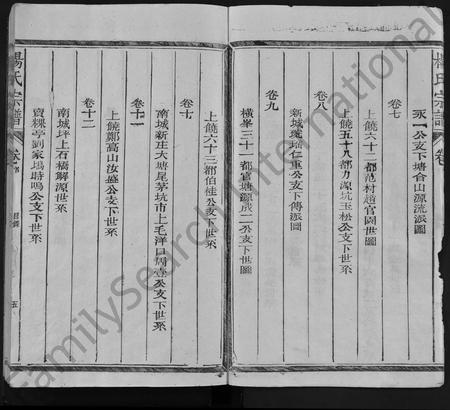 楊氏宗譜
卷
永一公支下塘合山源流派圖
卷七
上饒六十二都范村趙官園世圖
上饒五十八都力源坑玉松公支下世系
卷八
新城珑瑶仁重公支下傳派圖
卷九
橫峯三十一都官塘源成二公支下世圖
上饒六十三都伯桂公支下世系
卷十
南城新庄大塘尾茅坑市上毛洋口周壹公支下世系
卷十一
上饒鄭高山汝盛公支下世系
卷十二
南城坪上石橋解源世系
賣粿亭劉家塢時鳴公支下世系
楊氏宗譜
卷首
目錄
五
FamilySearch International